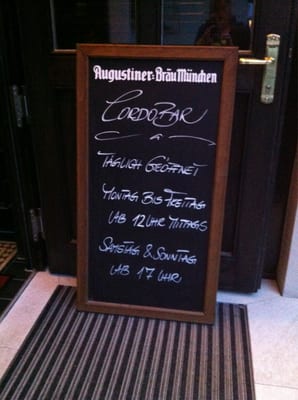 Augustiner-Bräu München
CORDOBAR
TÄGLICH GEÖFFNET
MONTAG BIS FREITAG
AB 12 UHR MITTAGS
SAMSTAG & SONNTAG
AB 17 UHR